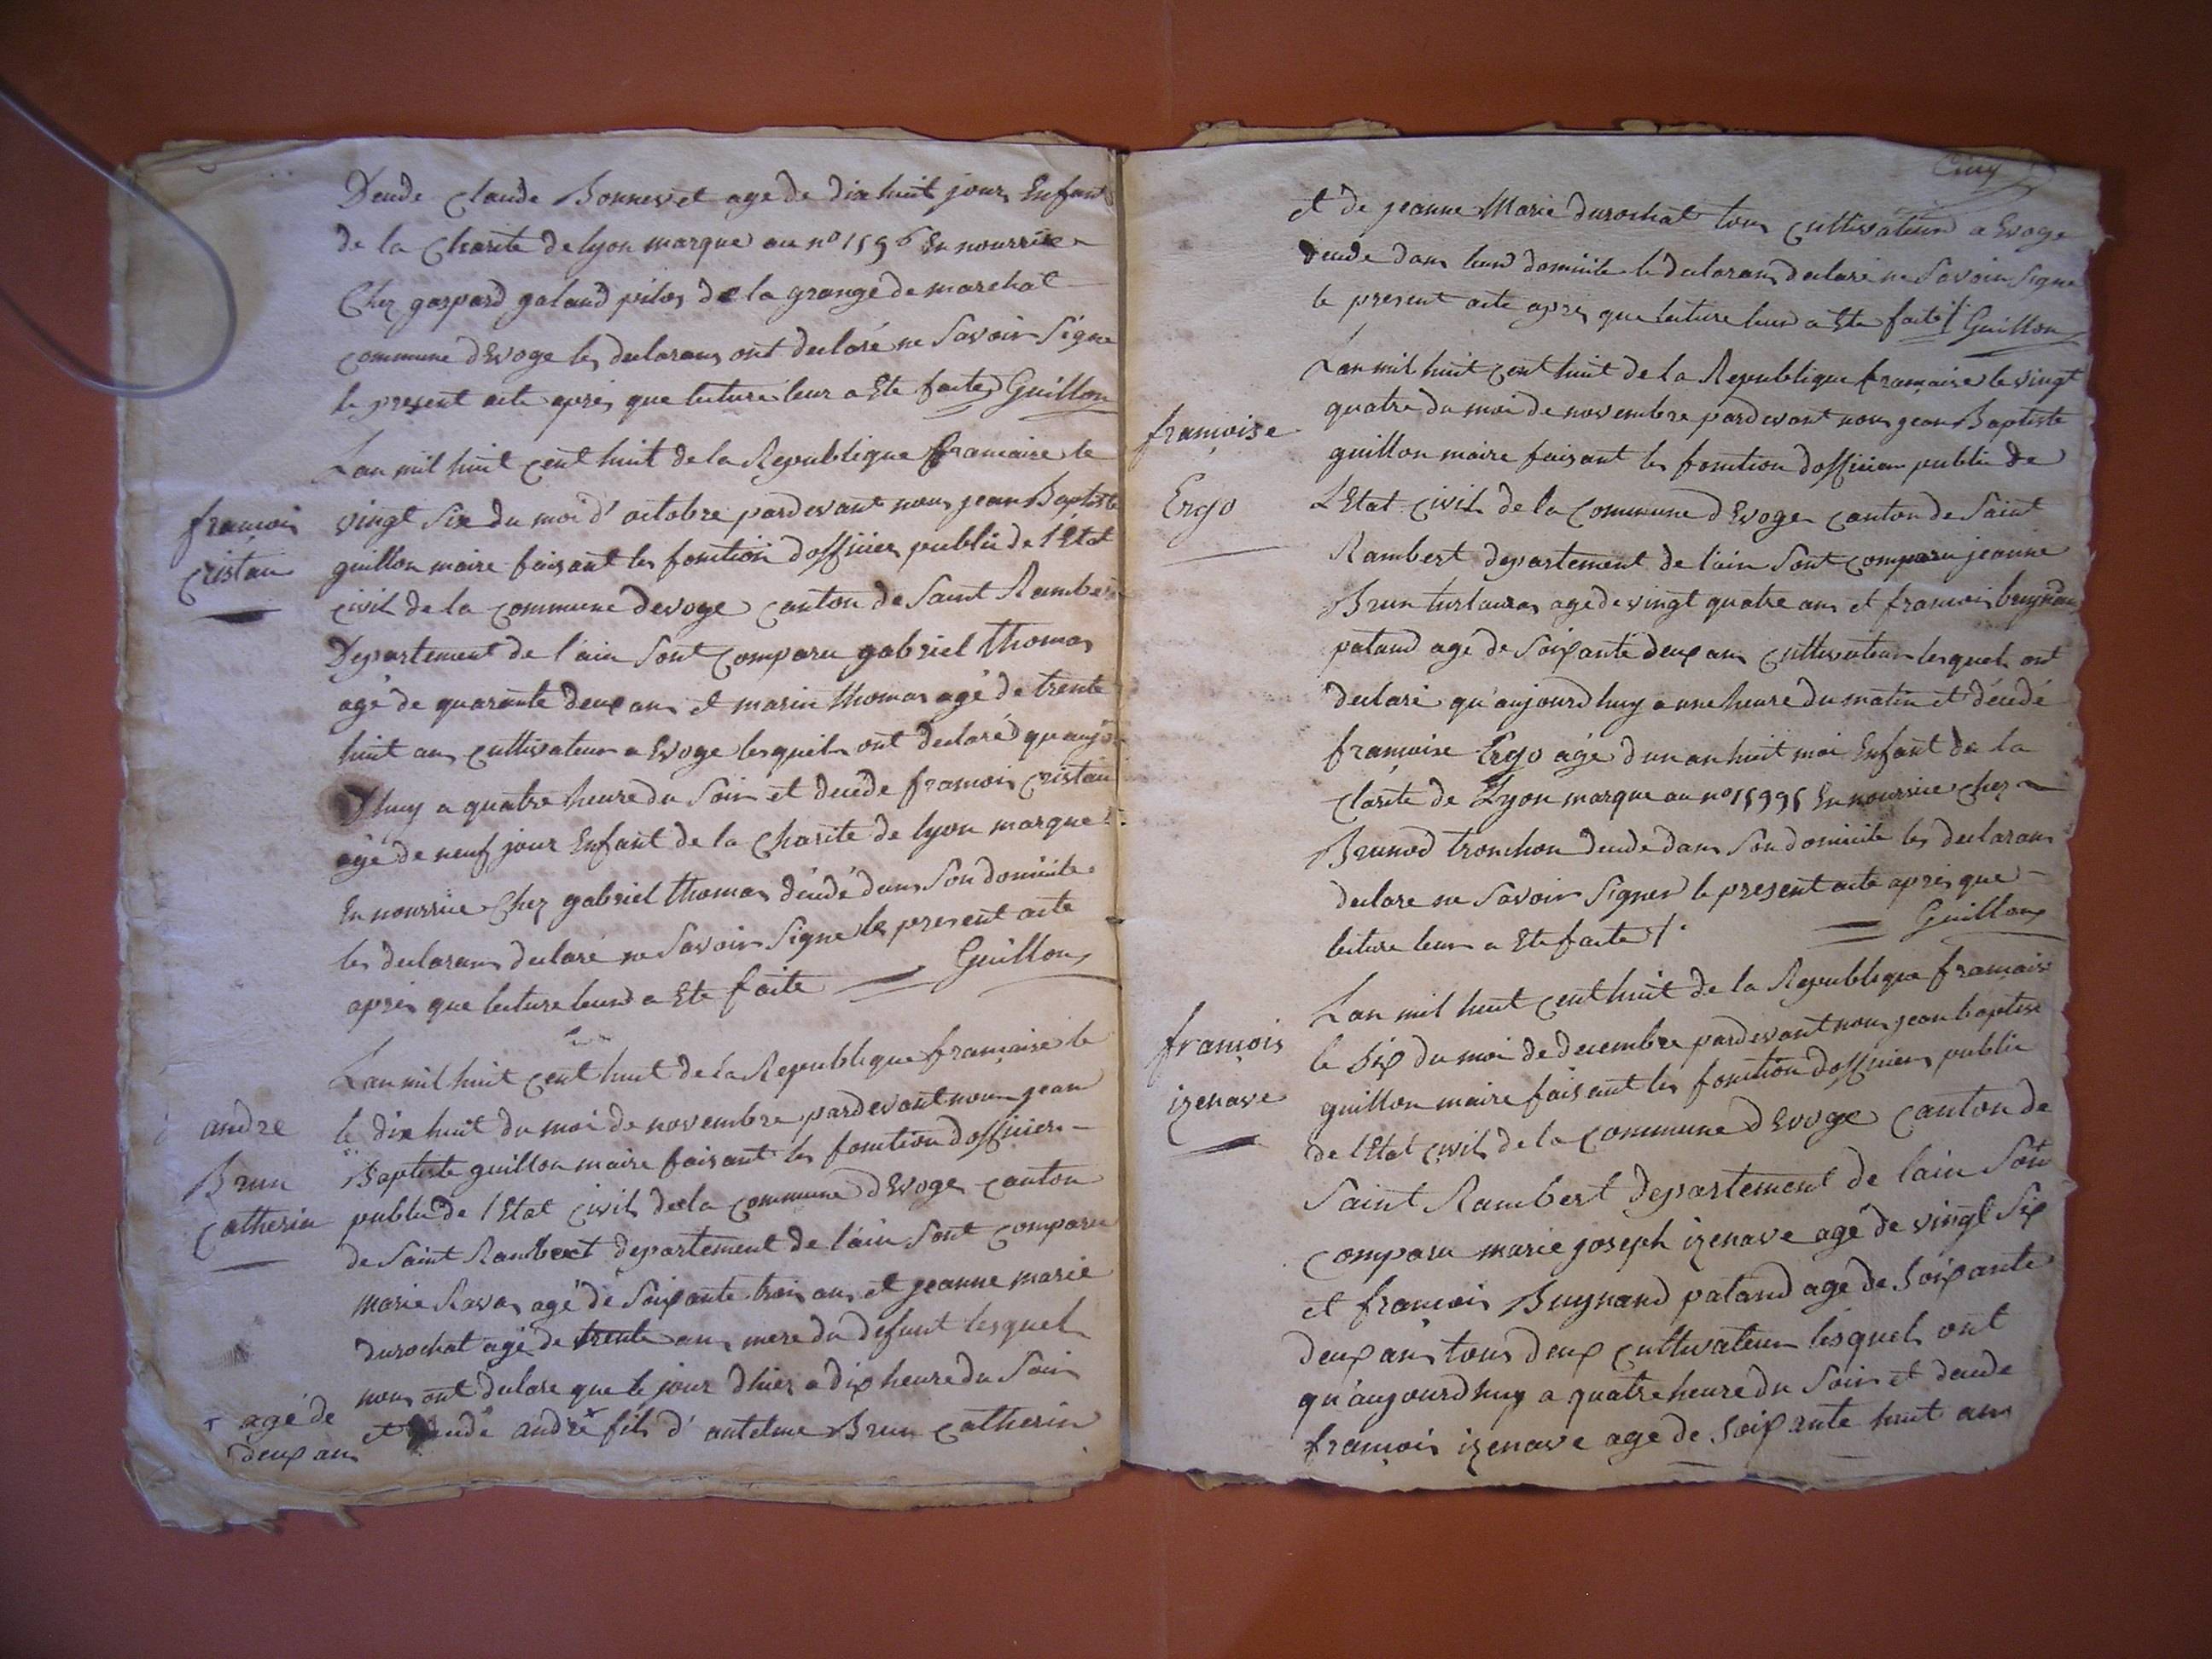 Decede Claude Bonnevet age de dix huit jours Enfant
de la Charite de lyon marque au no 1596 En nourrice
Chez gaspard galand pilos de la grange de marchat
commune d'Evoge les declarans ont declaré ne Savoir Signe
le present acte apres que lecture leur a Ete faite Guillon
francois
cristau
Lan mil huit cent huit de la Republique francaise le
vingt Six du moi d'octobre pardevant nous jean Baptiste
guillon maire faisant les fonction d'officier public de l'Etat
civil de la commune devoge canton de Saint Rambert
Departement de l'ain Sont Comparu gabriel thomas
agé de quarante deux ans et marin thomas agé de trente
huit ans cultivateur a Evoge lesquels ont declaré qu'aujour
Dhuy a quatre heure du Soir et decede francois cristau
agé de neuf jour Enfant de la Charite de lyon marque
En nourrice Chez gabriel thomas décédé dans Son domicile
les declarans declaré ne Savoir Signe le present acte
apres que lecture leur a Ete faite Guillon
andre
Brun
Catherin
Lan mil huit cent huit de la Republique francaise le
le dix huit du moi de novembre pardevant nous jean
Baptiste guillon maire faisant les fonction d'officier
public de l'Etat civil de la commune d'Evoge canton
de Saint Rambert departement de l'ain Sont comparu
marie Ravas agé de Soixante trois ans et jeanne marie
durochat agé de trente ans mere du defunt lesquel
nous ont declare que le jour d'hier a dix heure du Soir
et decede andre + fils d'antelme Brun Catherin
+ agé de
deux ans
Cinq
et de jeanne Marie durochat tous cultivateurs a Evoge
decede dans leurs domicile le declarans declaré ne Savoir Signe
le present acte apres que lecture leurs a Ete faite /. Guillon
francoise
Ergo
Lan mil huit cent huit de la Republique francaise le vingt
quatre du moi de novembre pardevant nous jean Baptiste
guillon maire faisant les fonction d'officier public de
L'Etat civil de la Commune d'Evoge canton de Saint
Rambert departement de l'ain Sont comparu jeanne
Brun turlauras age de vingt quatre ans et francois buynand
patand agé de Soixante deux ans cultivateur lesquels ont
declaré qu'aujourdhuy a une heure du matin et décédé
francoise Ergo âgé d'un an huit moi Enfant de la
Clarite de Lyon marque au no 15995 En nourrice chez
Brunod tronchon decede dans Son domicile les declarans
declare ne Savoir Signer le present acte apres que
lecture leur a Ete faite /. Guillon
francois
izenave
Lan mil huit cent huit de la Republique francaise
le Six du moi de decembre pardevant nous jean baptiste
guillon maire faisant les fonction d'officier public
de l'Etat civil de la commune d'Evoge Canton de
Saint Rambert departement de lain Sont
comparu marie joseph izenave agé de vingt Six
et francois Buynand patand agé de Soixante
deux ans tous deux cultivateur lesquels ont
qu'aujourdhuy a quatre heure du Soir et decede
francois izenave age de Soixante huit ans